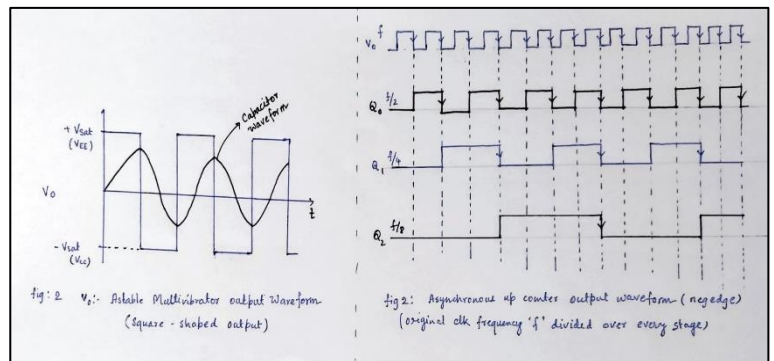 + Vsat
(VEE)
Capacitor
Waveform
Vo
t
- Vsat
(VCC)
fig: 2 Vo:- Astable Multivibrator output Waveform
(Square - shaped output)
f
Vo
f/2
Q0
f/4
Q1
f/8
Q2
fig 2: Asynchronous up counter output waveform (neg edge)
(original clk frequency 'f' divided over every stage)